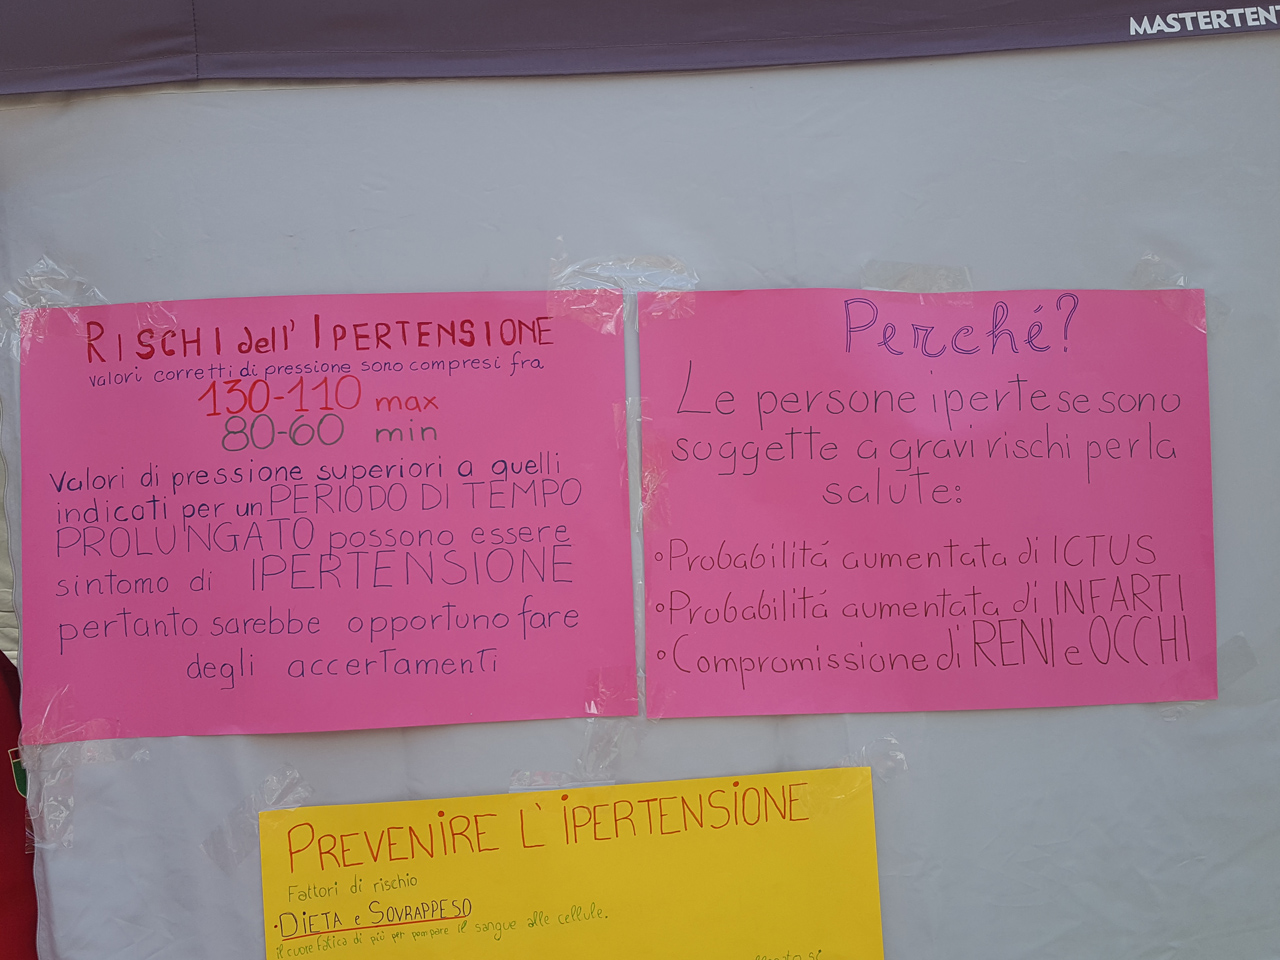 MASTERTENT
RISCHI dell' IPERTENSIONE
valori corretti di pressione sono compresi fra
130-110 max
80-60 min
Valori di pressione superiori a quelli
indicati per un PERIODO DI TEMPO
PROLUNGATO possono essere
sintomo di IPERTENSIONE
pertanto sarebbe opportuno fare
degli accertamenti
Perché?
Le persone ipertese sono
soggette a gravi rischi per la
salute:
• Probabilitá aumentata di ICTUS
• Probabilitá aumentata di INFARTI
• Compromissione di RENI e OCCHI
PREVENIRE L' IPERTENSIONE
Fattori di rischio
• DIETA e SOVRAPPESO
il cuore fatica di più per pompare il sangue alle cellule.
si